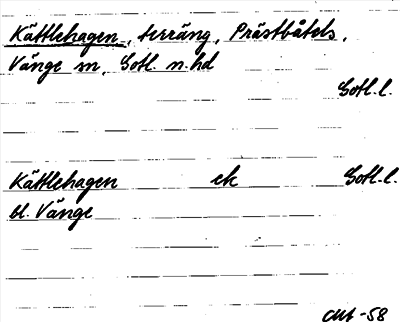 Kättlehagen, terräng, Prästbåtels,
Vänge sn, Gotl. n. hd
Gotl. l.
Kättlehagen ek Gotl. l.
bl. Vänge
-58